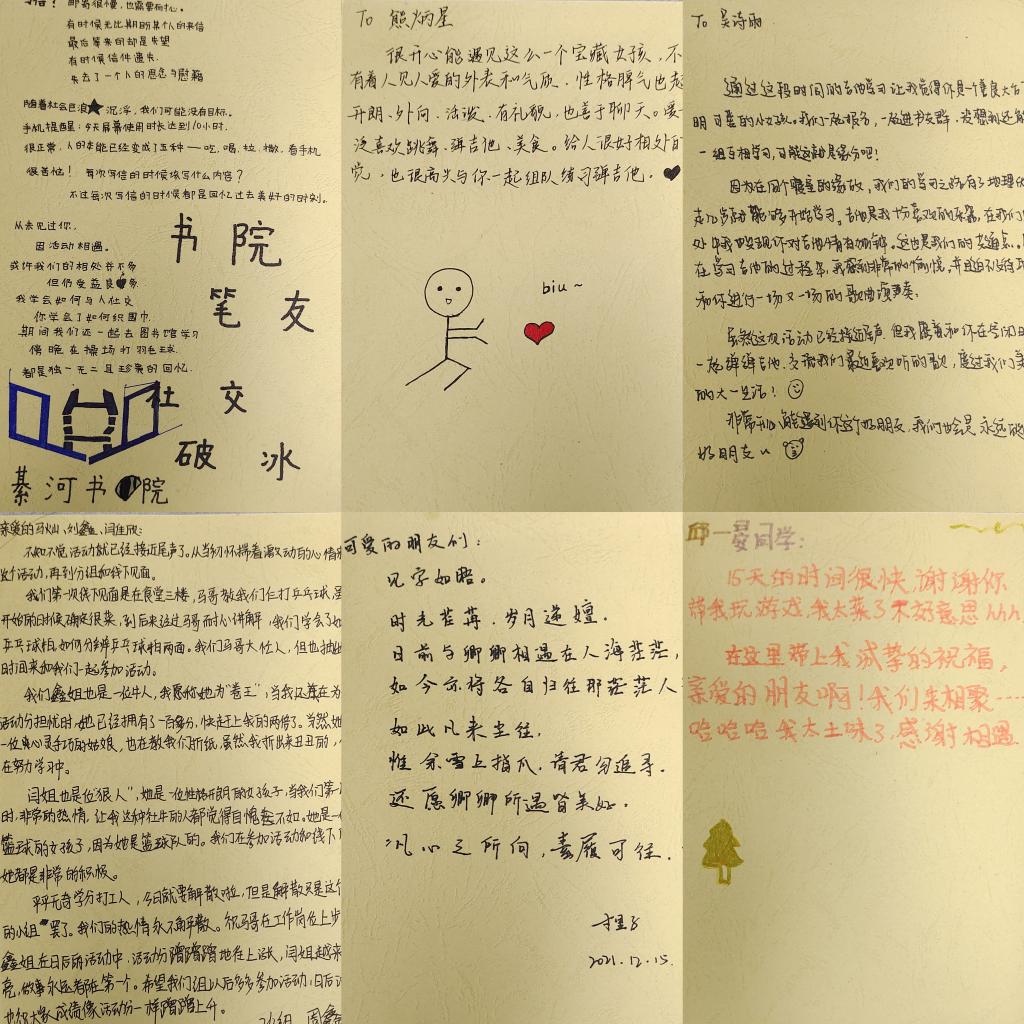 有时候无比期盼某个人的来信
最后等来的却是失望
有时候信件遗失
失去了一个人的思念与慰藉
沉浮,我们可能没有目标。
手机提醒:今天屏幕使用时长达到10小时.
很正常,人的本能已经变成了五种——吃、喝、拉、撒、看手机
很苦恼! 每次写信的时候该写什么内容?
不过每次写信的时候都是回忆过去美好的时刻.
从未见过你.
因活动相遇。
或许我们的相处并不多
但仍受益良多.
我学会如何与人社交
你学会了如何织围巾.
期间我们还一起去图书馆学习
傍晚在操场打羽毛球.
都是独一无二且珍贵的回忆.
书院
笔友
社交
破冰
綦河书院
To 熊炳星
很开心能遇见这么一个宝藏女孩,不
有着人见人爱的外表和气质,性格脾气也超
开朗、外向、活泼、有礼貌,也善于聊天。爱
泛喜欢跳舞、弹吉他、美食。给人很好相处的
觉,也很高兴与你一起组队练习弹吉他.
biu~
To 吴诗雨
通过这段时间的吉他学习让我觉得你是一个
明可爱的小女孩。我们一起报名,一起进书友群,没想到还能
一组互相学习,可能这就是缘分吧!
因为在同个寝室的缘故,我们的学习之路有了地理优
走几步就能够开始学习。吉他是我十分喜欢的乐器,在我们
在学习吉他的过程中,我感到非常的愉悦,并且迫不及待
和你进行一场又一场的歌曲演奏.
虽然这次活动已经接近尾声.但我愿意和你在空闲日
一起弹弹吉他.交流我们最近喜欢听的歌,度过我们美
的大一生活!
非常开心能遇到你这个好朋友,我们也会是永远的
好朋友~
亲爱的马灿、刘鑫、闫佳欣:
不知不觉活动就已经接近尾声了。从当初怀揣着激动的心情报
这个活动,再到分组和线下见面。
我们第一次线下见面是在食堂三楼,马哥教我们仨打乒乓球,虽
开始的时候确定很菜,到后来经过马哥耐心讲解,我们学会了如
乒乓球拍,如何分辨乒乓球拍两面。我们马哥大忙人,但也抽出
时间来和我们一起参加活动。
我们鑫姐也是一位牛人,我愿称她为“卷王”,当我还在为
活动分担忧时,她已经拥有了一百多分,快赶上我的两倍了。当然她
一位真心灵手巧的姑娘,也在教我们折纸,虽然我折出来丑丑的,
在努力学习中。
闫姐也是位“狠人”,她是一位性格开朗的女孩子,当我们第一
时,非常的热情,让我这种社牛的人都觉得自愧不如。她是一
篮球的女孩子,因为她是篮球队的。我们在参加活动和线下
她都是非常的积极。
平平无奇学分打工人,今日就要解散啦,但是解散只是这个
的小组罢了。我们的热情永不解散。祝马哥在工作岗位上步
鑫姐在日后的活动中,活动分蹭蹭蹭地往上涨,闫姐越来
亮,做事永远都在第一个。希望我们组以后多多参加活动,日后
也祝大家成绩像活动分一样蹭蹭上升。
可爱的朋友们:
见字如晤。
时光荏苒,岁月递嬗.
日前与卿卿相遇在人海茫茫,
如今亦将各自归往那茫茫人
如此凡来尘往,
惟余雪上指爪,请君勿追寻.
还愿卿卿所遇皆美好.
凡心之所向,素履可往.
2021.12.15.
邱一晏同学:
15天的时间很快,谢谢你
带我玩游戏,我太菜了不好意思hhh,
在这里带上我诚挚的祝福,
亲爱的朋友啊!我们来相聚……
哈哈哈我太土味了,感谢相遇.